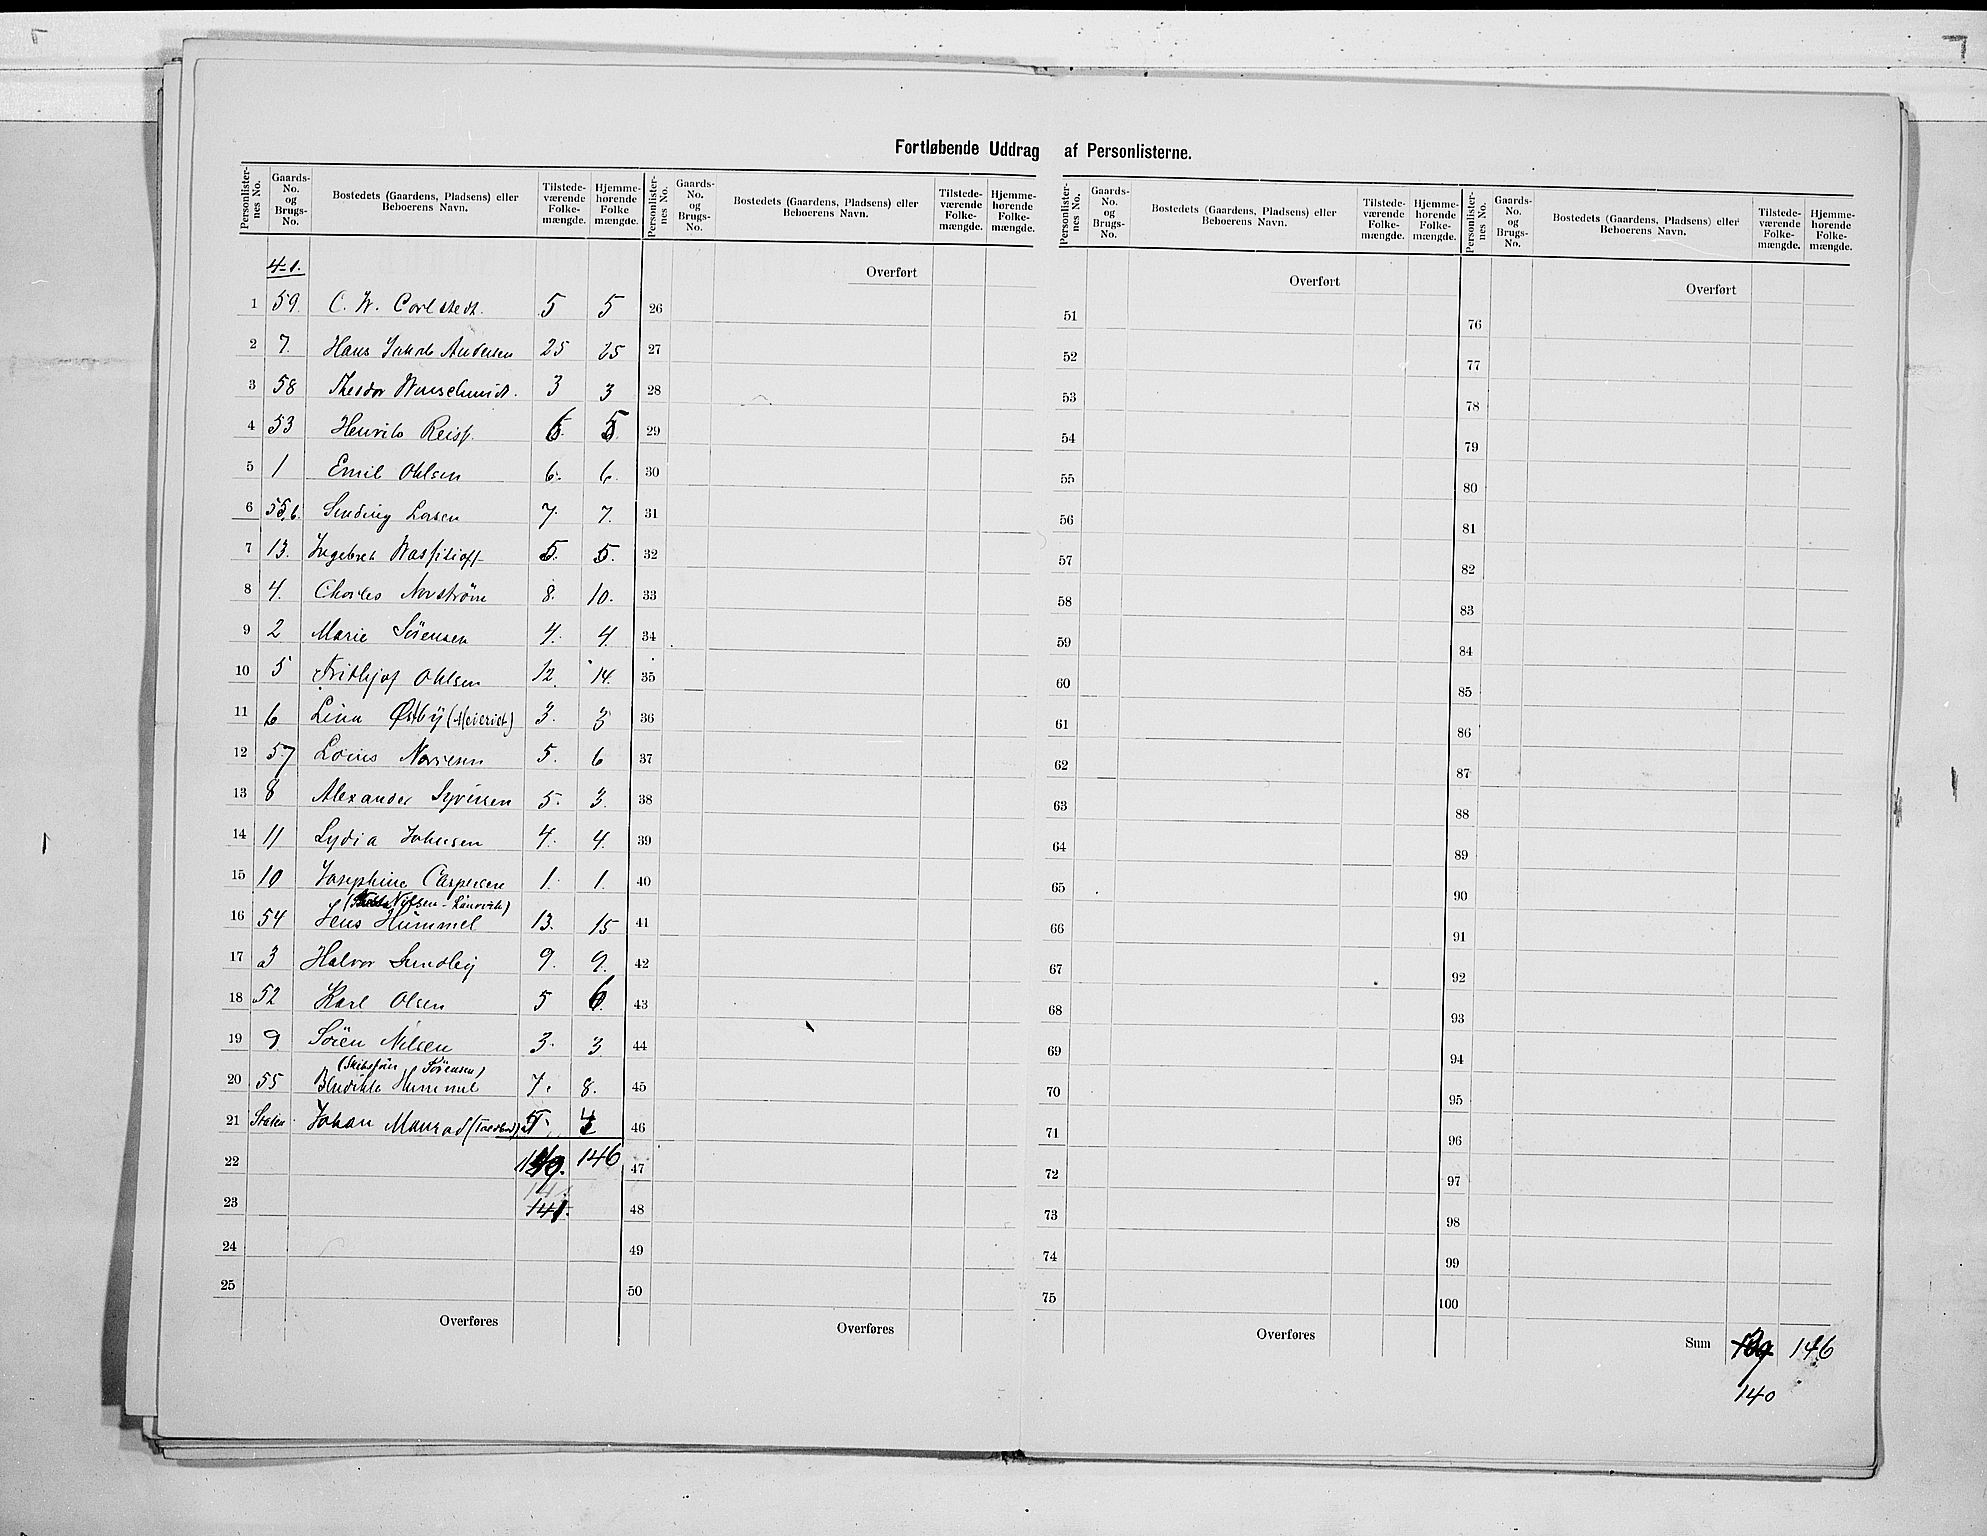 Fortløbende Uddrag af Personlisterne.
Personlister-nes No. Gaards-No. og Brugs-No. Bostedets (Gaardens, Pladsens) eller Beboerens Navn. Tilstede-værende Folke-mængde. Hjemme-hørende Folke mængde.
4-1.
1 59. C. W. Carlstedt. 5 5
2 7. Hans Jakob Andersen 25 25
3 58 Theodor 3 3
4 53 Henrik Reiss. 6. 5.
5 1 Emil Ohlsen 6. 6.
6 55,6. Sinding Larsen 7. 7.
7 13. Ingebret 5. 5.
8 4. Charles Norström 8. 10.
9 2 Marie Sörensen 4. 4.
10 5 Fridtjof Ohlsen 12. 14.
11 6 Lina Østby (Meieriet) 3. 3
12 57 Louis 5. 6
13 8 Alexander Syvertsen 5. 3.
14 11 Lydia Johnsen 4. 4.
15 10 Josephine Caspersen 1. 1.
(Nilsen - Länsvik)
16 54 Jens Hummel 13. 15
17 3 Halvor Sundby 9. 9.
18 52 Karl Olsen 5 6
19 9. Sören Nilsen 3. 3
(Skibsfører Sörensen)
20 55 Bendikte Hummel 7. 8.
21 Staten Johan 5
22 146
23 141.
24
25
Overføres
Personlister-nes No. Gaards-No. og Brugs-No. Bostedets (Gaardens, Pladsens) eller Beboerens Navn. Tilstede-værende Folke-mængde. Hjemme-hørende Folke-mængde.
Overført
26
27
28
29
30
31
32
33
34
35
36
37
38
39
40
41
42
43
44
45
46
47
48
49
50
Overføres
Personlister-nes No. Gaards-No. og Brugs-No. Bostedets (Gaardens, Pladsens) eller Beboerens Navn. Tilstede-værende Folke-mængde. Hjemme-hørende Folke-mængde.
Overført
51
52
53
54
55
56
57
58
59
60
61
62
63
64
65
66
67
68
69
70
71
72
73
74
75
Overføres
Personlister-nes No. Gaards-No. og Brugs-No. Bostedets (Gaardens, Pladsens) eller Beboerens Navn. Tilstede-værende Folke-mængde. Hjemme-hørende Folke-mængde.
Overført
76
77
78
79
80
81
82
83
84
85
86
87
88
89
90
91
92
93
94
95
96
97
98
99
100
Sum 139 146
140